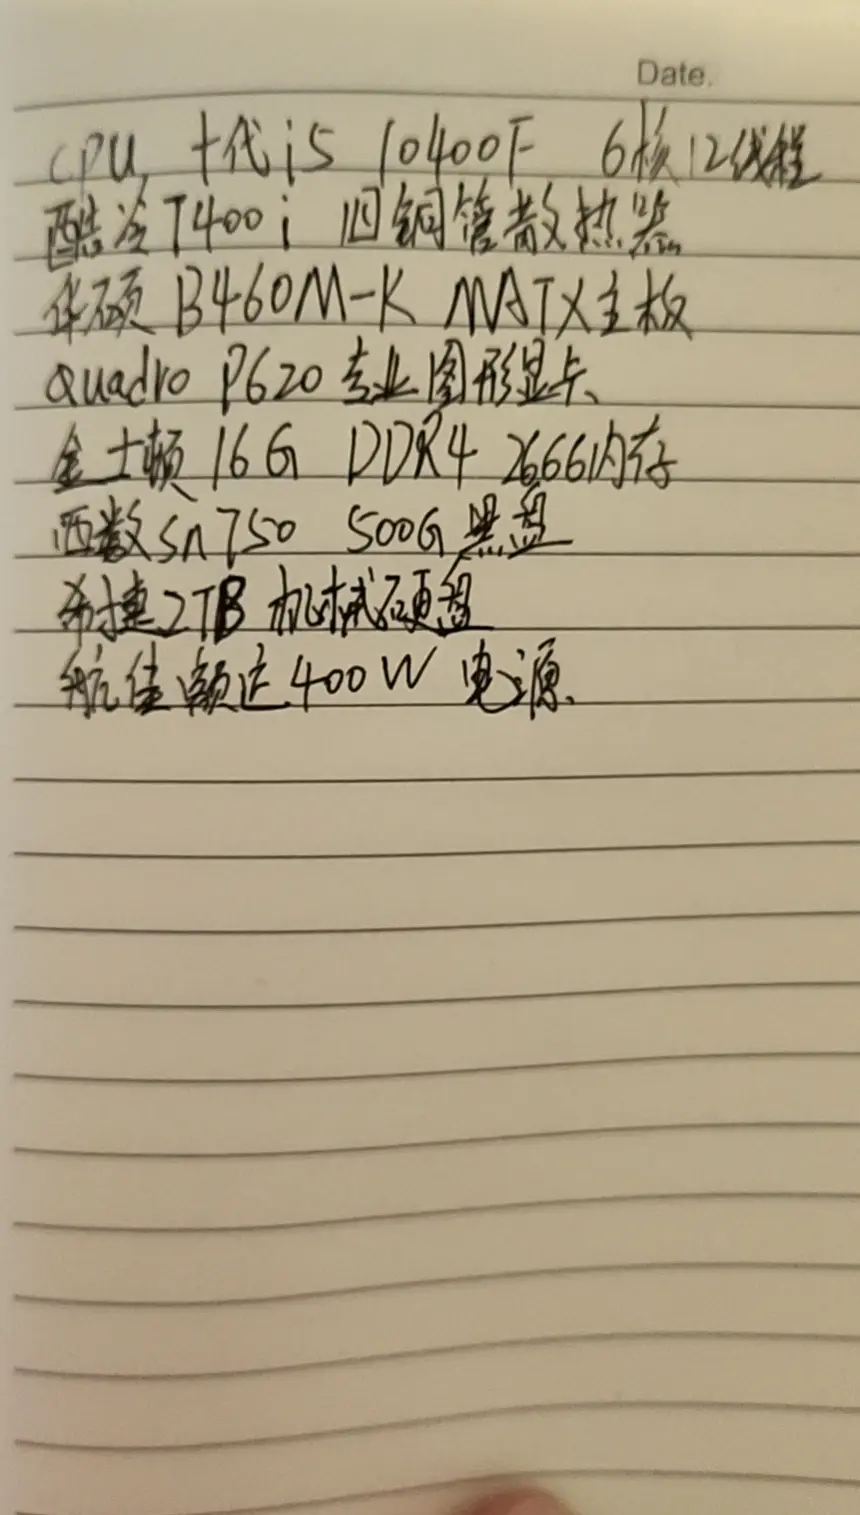 Date.
CPU 十代i5 10400F 6核12线程
酷冷T400i 四铜管散热器
华硕 B460M-K MATX主板
Quadro P620专业图形显卡、
金士顿 16G DDR4 2666内存
西数sn750 500G黑盘
希捷2TB 机械硬盘
航佳额定400W 电源、